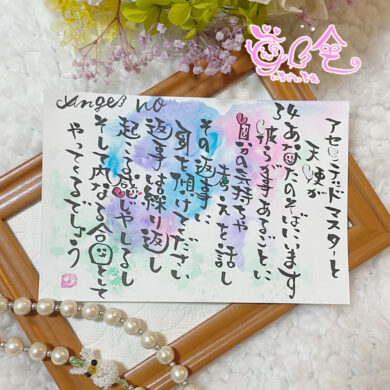 Angel no
34
アセンテッドマスターと
天使が
あなたのそばにいます
彼らに事あるごとに
自分の気持ちや
考えを話し
その返事に
耳を傾けてください
返事は繰り返し
起こる感じやしるし
そして内なる合図として
やってくるでしょう